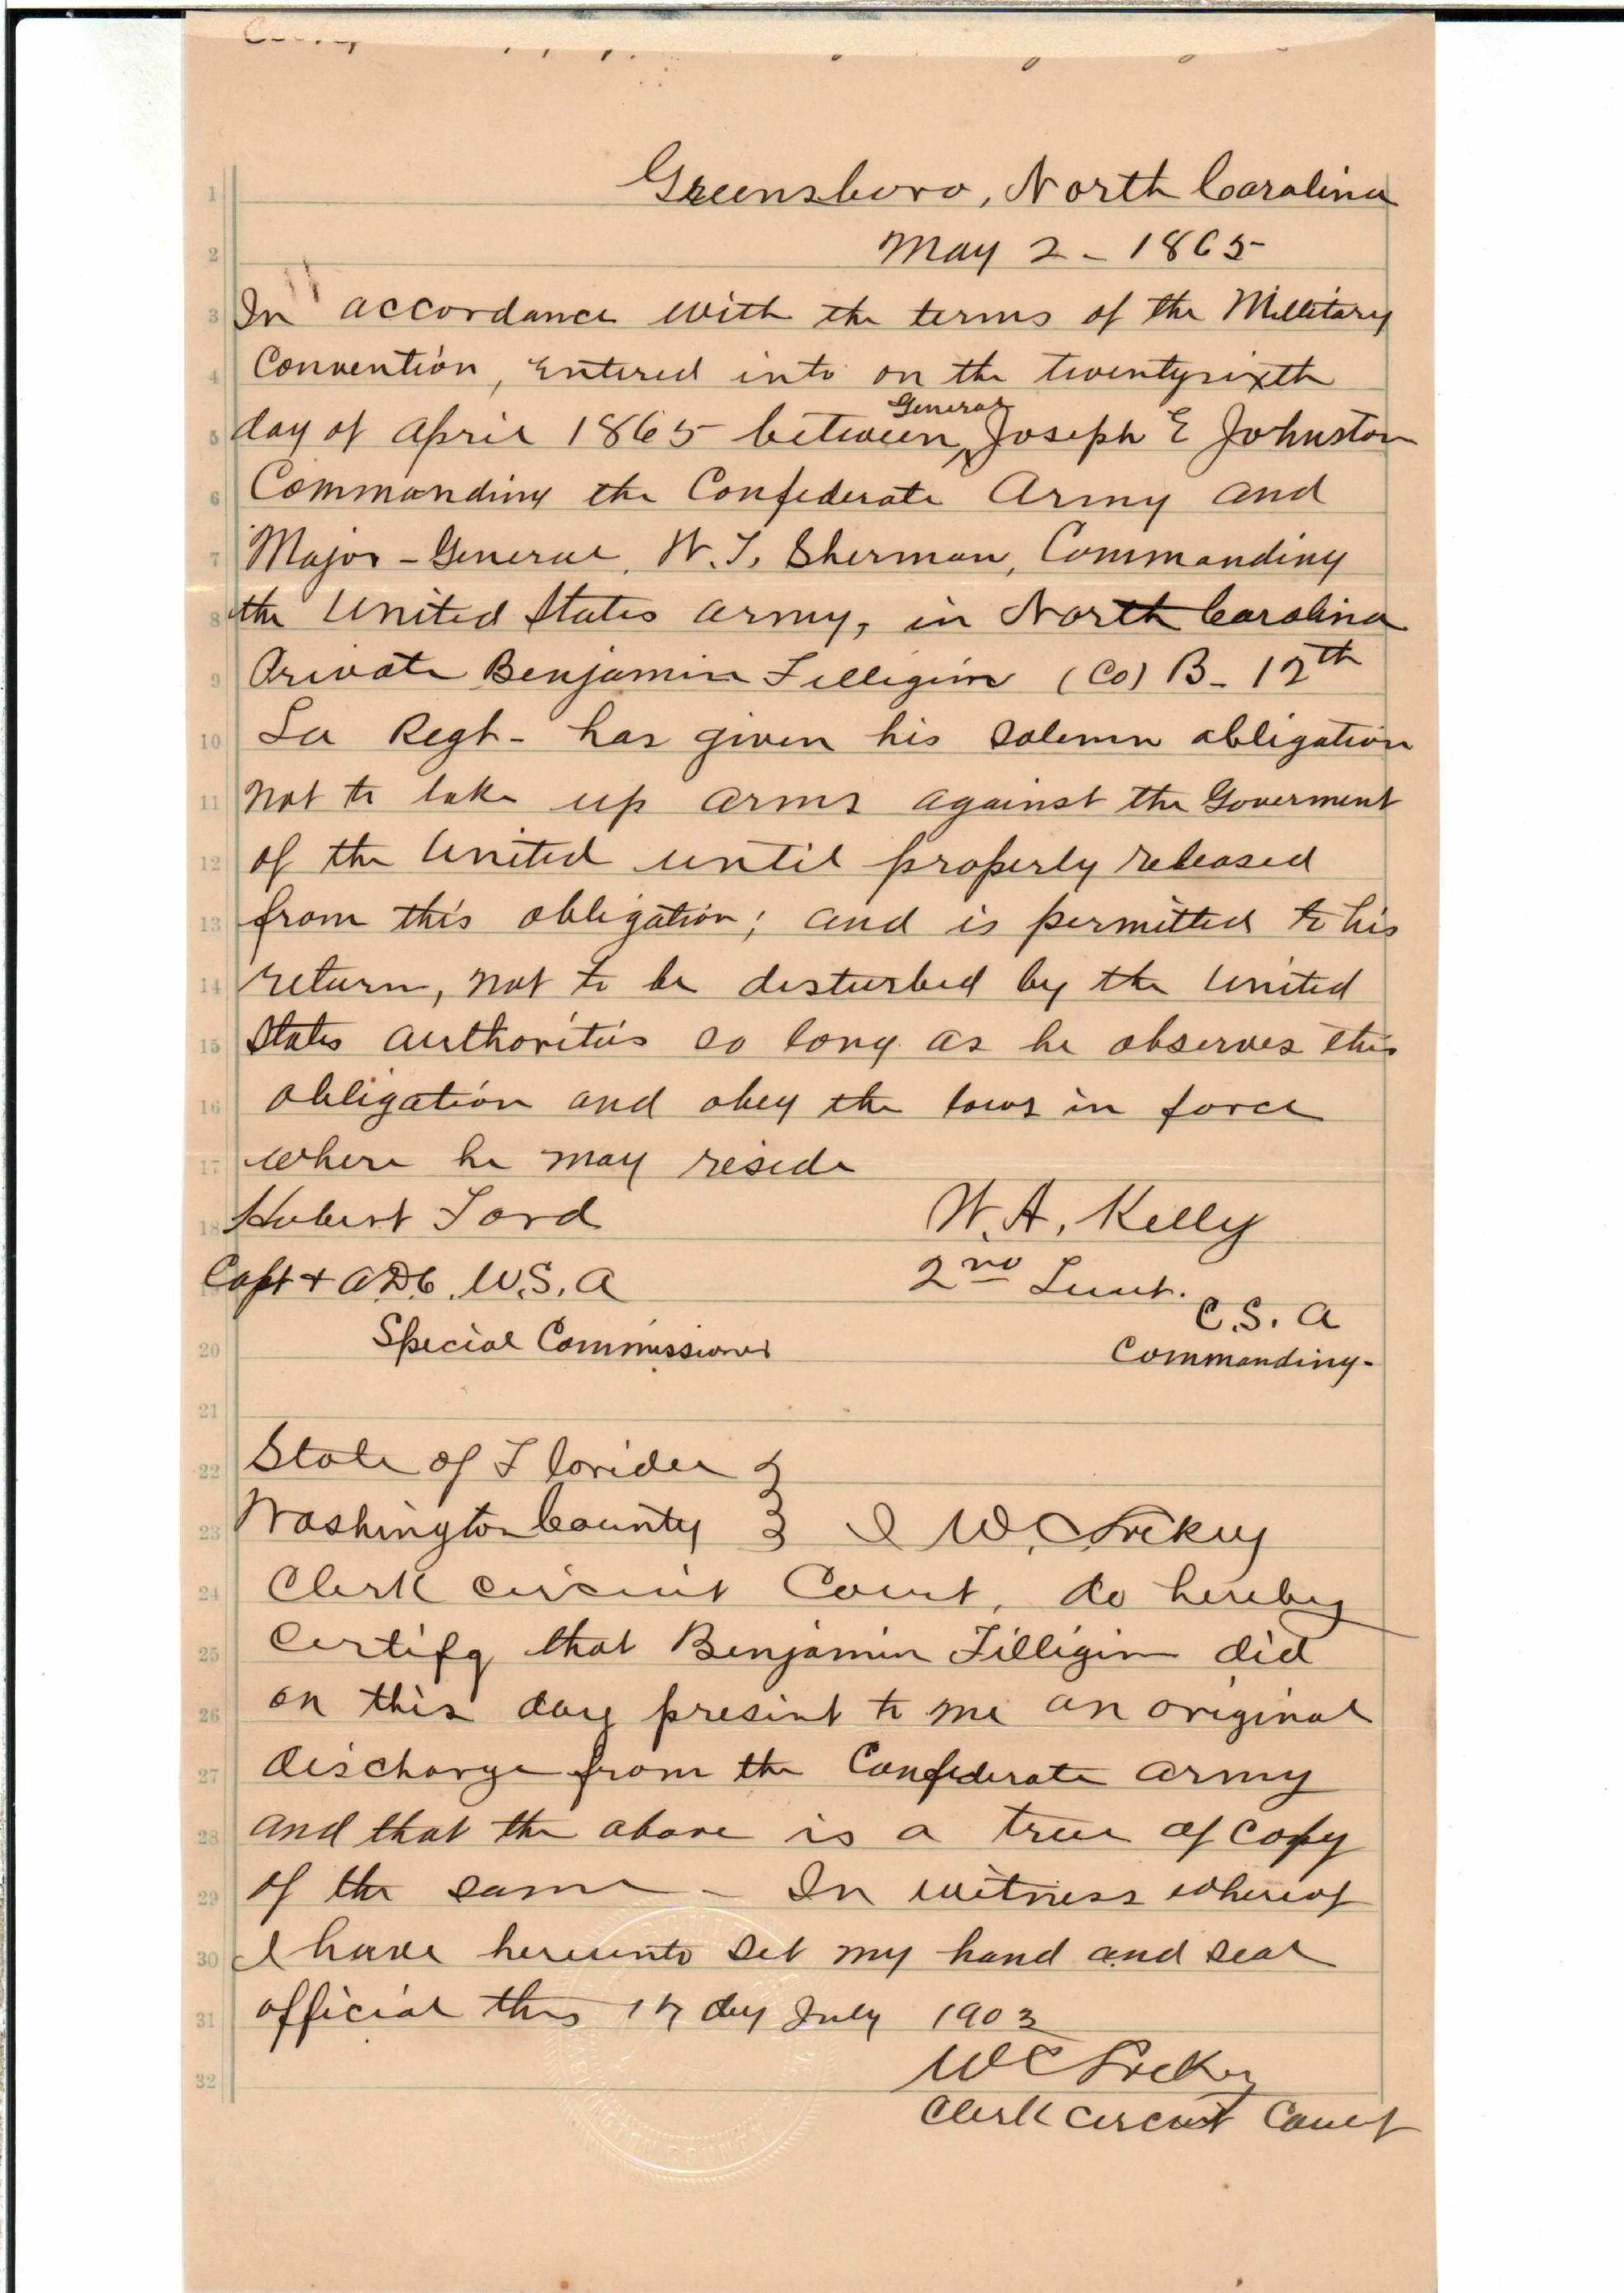 Greensboro, North Carolina
May 2 - 1865
In accordance with the terms of the Millitary
Convention, Entered into on the twentysixth
General
day of April 1865 between Joseph E Johnston
Commanding the Confederate Army and
Major - General, W. T. Sherman, Commanding
the United States Army, in North Carolina
Private Benjamin Filligim (Co) B - 12th
La Regt - has given his solemn obligation
not to take up arms against the Goverment
of the United until properly released
from this obligation; and is permitted to his
return, not to be desturbed by the United
States authorities so long as he observes this
obligation and obey the laws in force
where he may reside
Hubert Ford
W. A. Kelly
Capt + A.D.C. U.S.A
2nd Lieut.
C.S.A
Special Commissioner
Commanding -
State of Florida
Washington County I W. C.
Clerk circuit Court, do hereby
Certify that Benjamin Filligim did
on this day present to me an original
discharge from the Confederate army
and that the above is a true of copy
of the same - In witness whereof
I have hereunto set my hand and seal
official this 17 day July 1903
W C
Clerk circuit Court
1
2
3
4
5
6
7
8
9
10
11
12
13
14
15
16
17
18
20
21
22
23
24
25
26
27
28
29
30
31
32